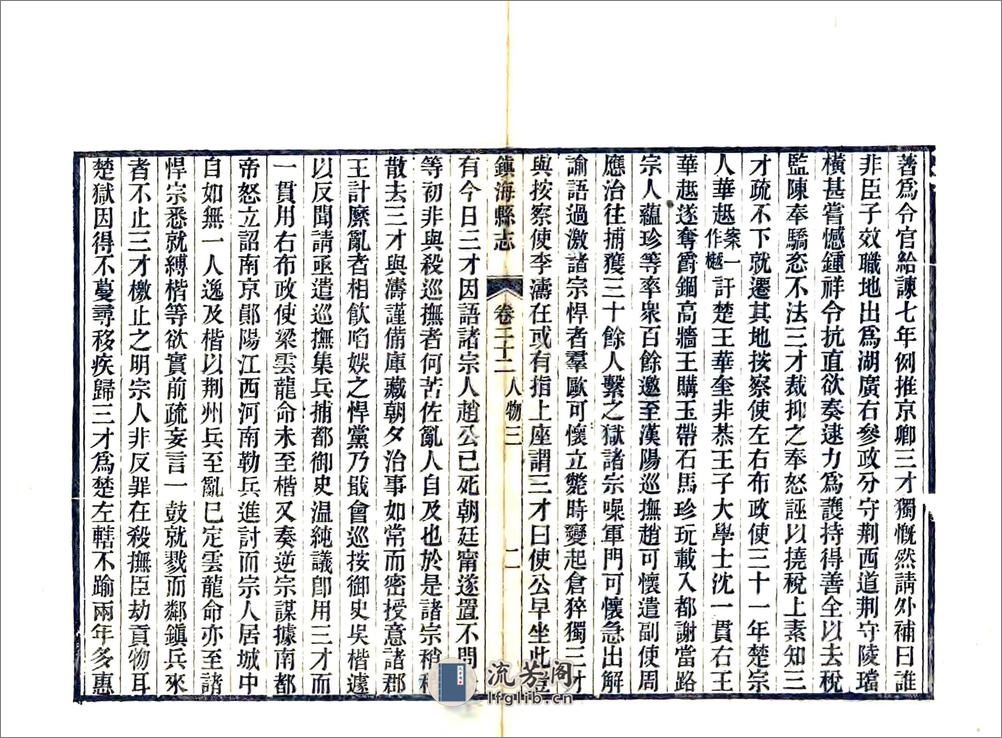 著爲令官給諫七年例推京卿三才獨慨然請外補曰誰
非臣子效職地出爲湖廣右參政分守荆西道荆守陵璫
橫甚嘗憾鍾祥令抗直欲奏逮力爲護持得善全以去稅
監陳奉驕恣不法三才裁抑之奉怒誣以撓稅上素知三
才疏不下就遷其地按察使左右布政使三十一年楚宗
人華趆案一作樾訐楚王華奎非恭王子大學士沈一貫右王
華趆遂奪爵錮高牆王購玉帶石馬珍玩載入都謝當路
宗人蘊珍等率衆百餘邀至漢陽巡撫趙可懷遣副使周
應治往捕獲三十餘人繫之獄諸宗噪軍門可懷急出解
諭語過激諸宗悍者羣毆可懷立斃時變起倉猝獨三才
與按察使李濤在或有指上座謂三才曰使公早坐此豈
鎮海縣志 卷二十二 人物三 二一
有今日三才因語諸宗人趙公已死朝廷甯遂置不問
等初非與殺巡撫者何苦佐亂人自及也於是諸宗稍稍
散去三才與濤謹備庫藏朝夕治事如常而密授意諸郡
王計縻亂者相飲啗娛之悍黨乃戢會巡按御史吳楷遽
以反聞請亟遣巡撫集兵捕都御史温純議卽用三才而
一貫用右布政使梁雲龍命未至楷又奏逆宗謀據南都
帝怒立詔南京鄖陽江西河南勒兵進討而宗人居城中
自如無一人逸及楷以荆州兵至亂已定雲龍命亦至諸
悍宗悉就縛楷等欲實前疏妄言一鼓就戮而鄰鎮兵來
者不止三才檄止之明宗人非反罪在殺撫臣劫貢物耳
楚獄因得不蔓尋移疾歸三才爲楚左轄不踰兩年多惠
流芳阁
lfglib.cn